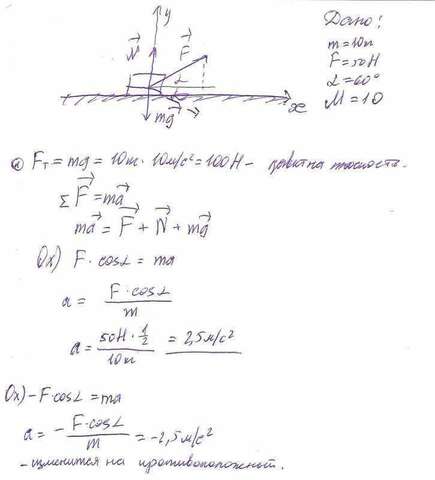 y
N
F
L
mg
x
Дано:
m=10кг
F=50Н
L=60°
M=10
Fт = mg = 10кг · 10м/с² = 100Н -
ΣF = ma
ma = F + N + mg
Ох) F · cosL = ma
a = F · cosL / m
a = 50Н · 1/2 / 10кг = 2,5 м/с²
Ох) -F·cosL = ma
a = - F·cosL / m = -2,5 м/с²
- изменится на противоположный.